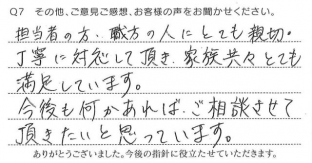 Q7 その他、ご意見ご感想、お客様の声をお聞かせください。
担当者の方、職方の人にとても親切・
丁寧に対応して頂き、家族共々とても
満足しています。
今後も何かあれば、ご相談させて
頂きたいと思っています。
ありがとうございました。今後の指針に役立たせていただきます。